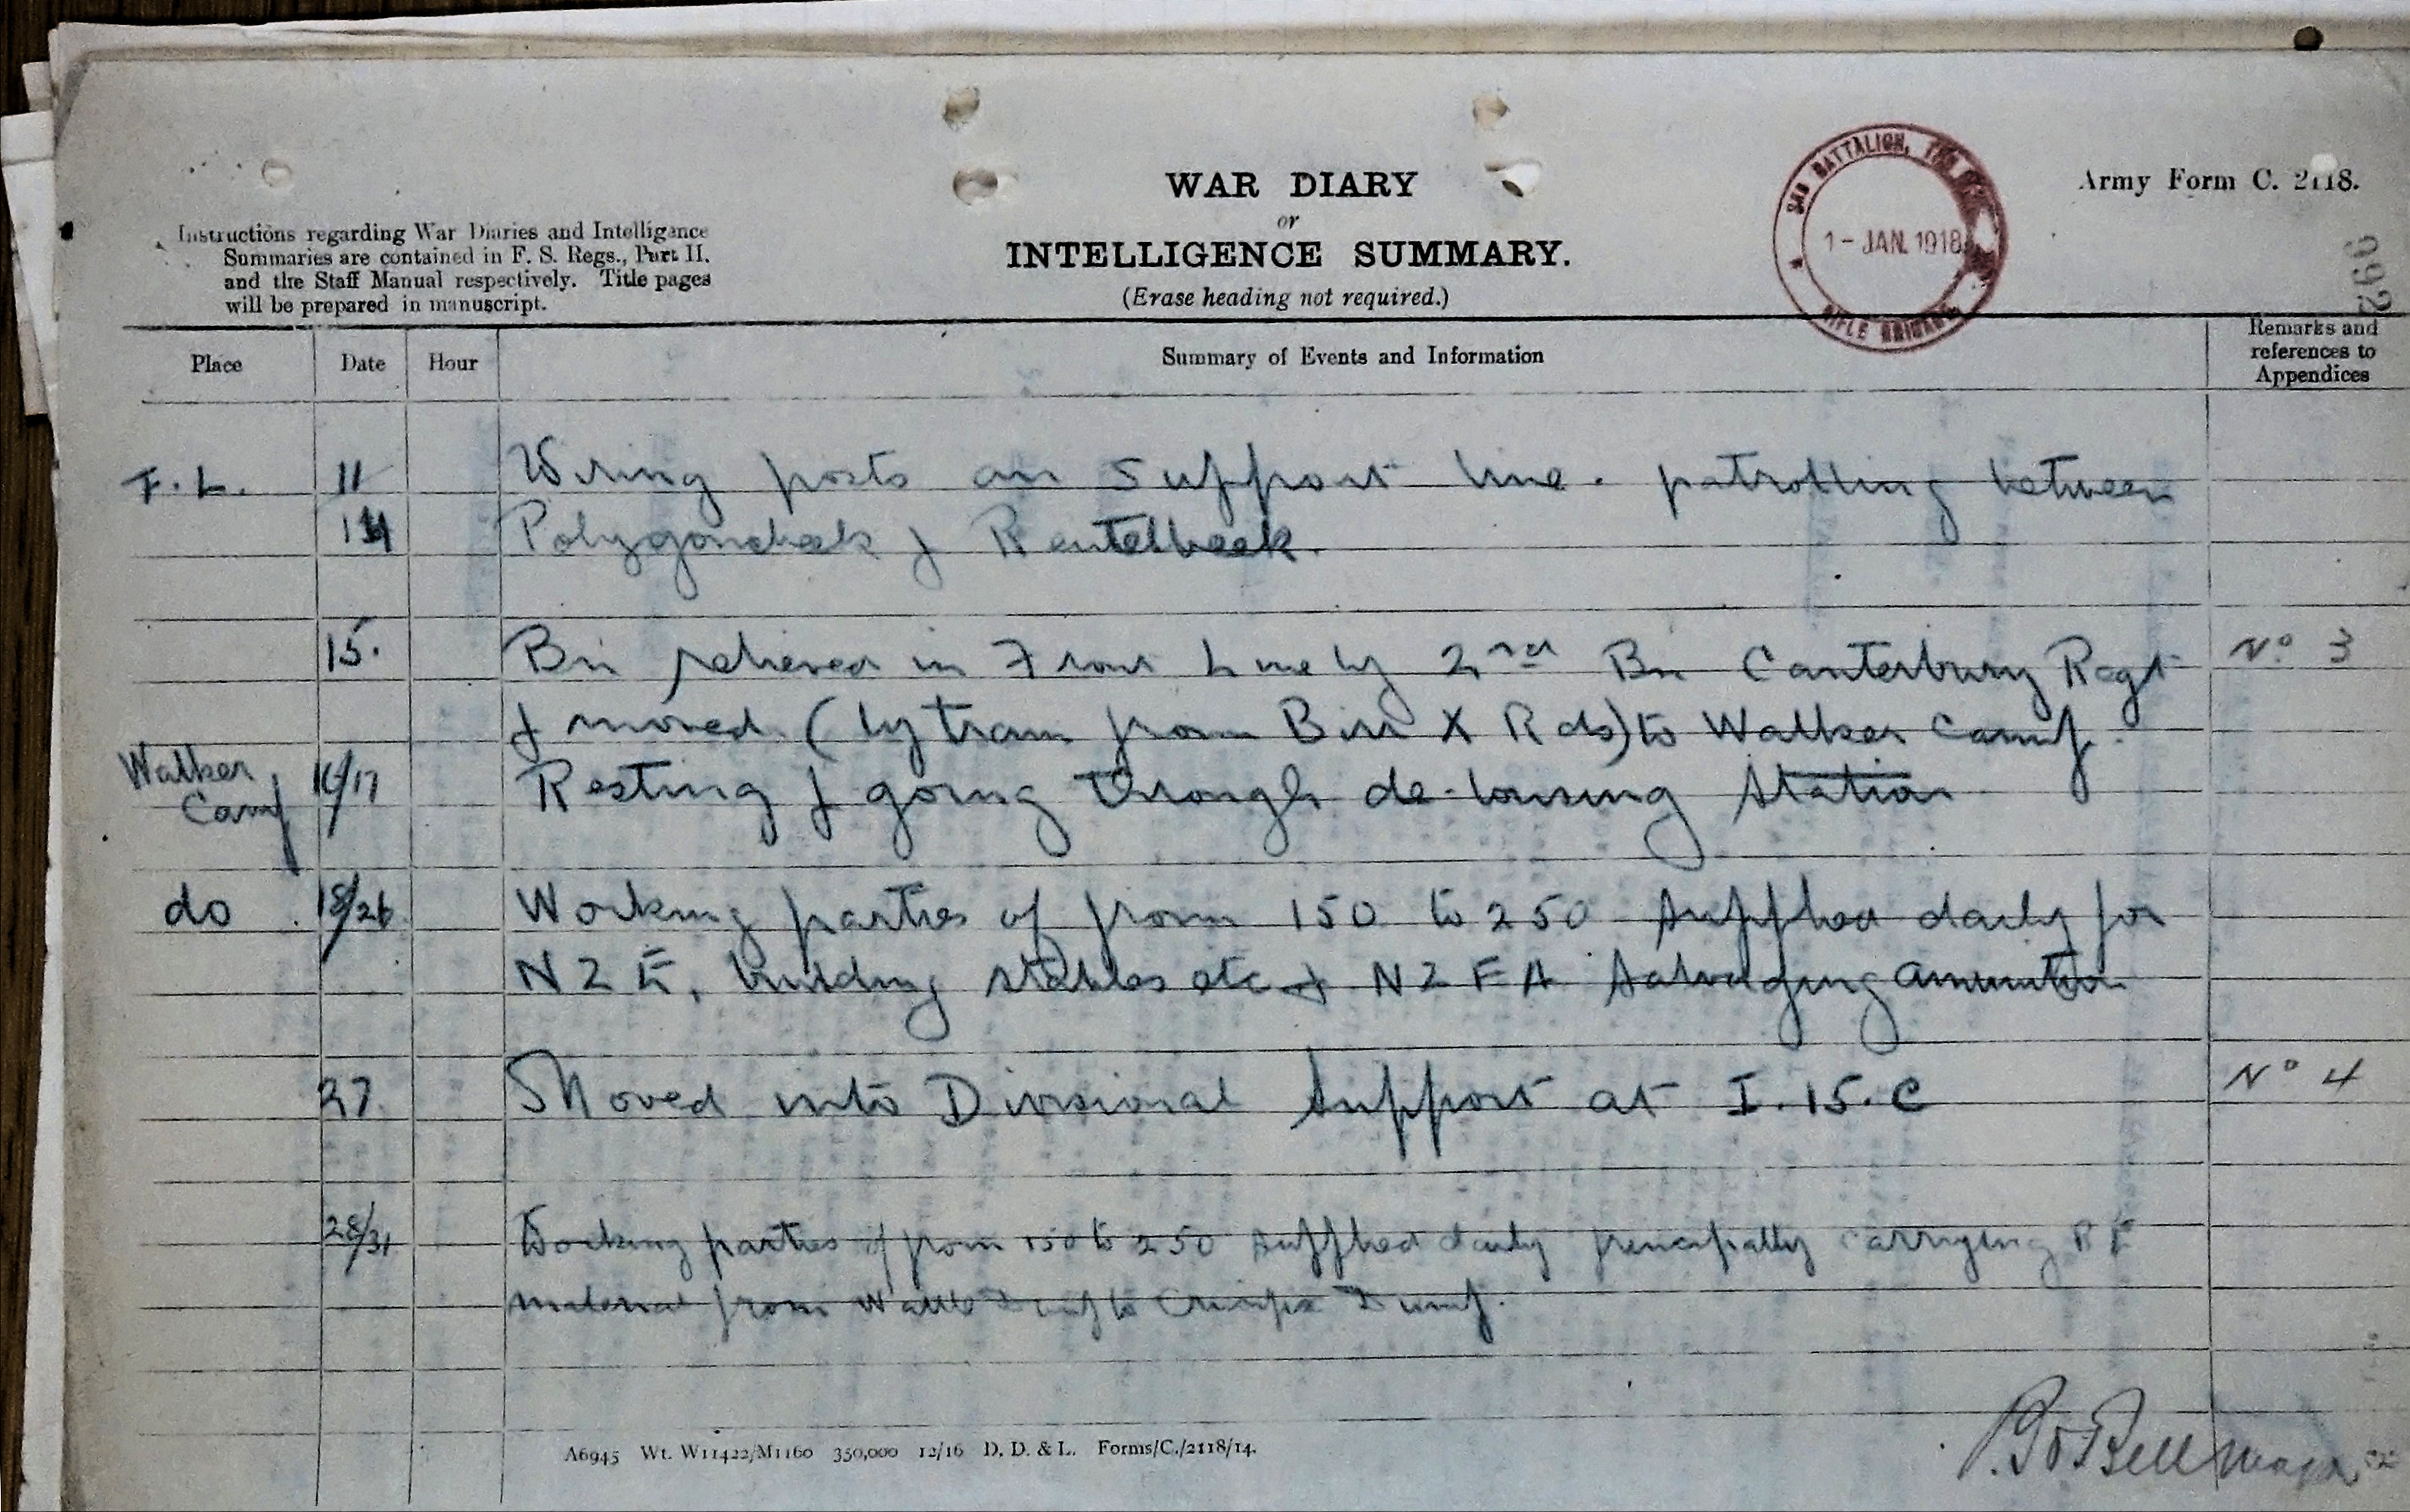 WAR DIARY
or
INTELLIGENCE SUMMARY.
(Erase heading not required.)
Army Form C. 2118.
Instructions regarding War Diaries and Intelligence
Summaries are contained in F. S. Regs., Part II.
and the Staff Manual respectively. Title pages
will be prepared in manuscript.
3RD BATTALION,
1 - JAN. 1918
RIFLE BRIGADE
Place Date Hour Summary of Events and Information Remarks and references to Appendices
F. L. 11 Wiring posts on Support line. patrolling between
14 Polygonebeek & Reutelbeek.
15. Bn relieved in Front Line by 2nd Bn Canterbury Regt No 3
& moved (by tram from Birr X Rds) to Walker Camp.
Walker Camp 16/17 Resting & going through de-lousing station
do 18/26 Working parties of from 150 to 250 supplied daily for
N Z E, building stables etc & N Z F A salvaging ammunition
27. Moved into Divisional Support at I. 15. C No 4
28/31 Working parties of from 150 to 250 supplied daily principally carrying R E
material from Wattle Dump to Crisps Dump.
Bell Major
A6945 Wt. W11422/M1160 350,000 12/16 D. D. & L. Forms/C./2118/14.